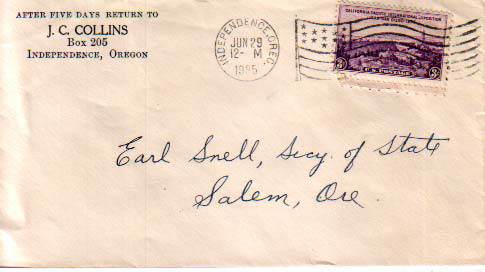 AFTER FIVE DAYS RETURN TO
J. C. COLLINS
BOX 205
INDEPENDENCE, OREGON
INDEPENDENCE, OREG.
JUN 29
12- M
1935
CALIFORNIA PACIFIC INTERNATIONAL EXPOSITION
U.S. POSTAGE
3¢ 3¢
Earl Snell, Secy. of State
Salem, Ore.